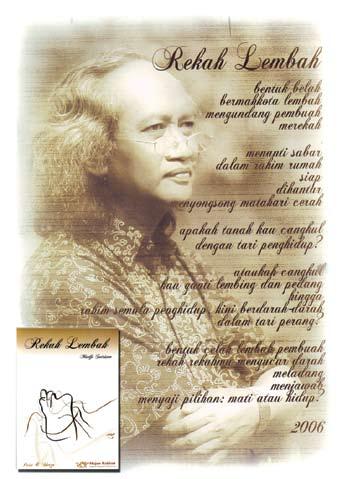 Rekah Lembah
bentuk belah
bermahkota lembah
mengundang pembuah
merekah
menanti sabar
dalam rahim rumah
siap
dihantar
menyongsong matahari cerah
apakah tanah kau cangkul
dengan tari penghidup?
ataukah cangkul
kau ganti lembing dan pedang
hingga
rahim semula penghidup kini berdarah-darah
dalam tari perang?
bentuk celah lembah pembuah
rekah rekahmu mengucur darah
meladang
menjawab
menyaji pilihan: mati atau hidup?
2006
Rekah Lembah